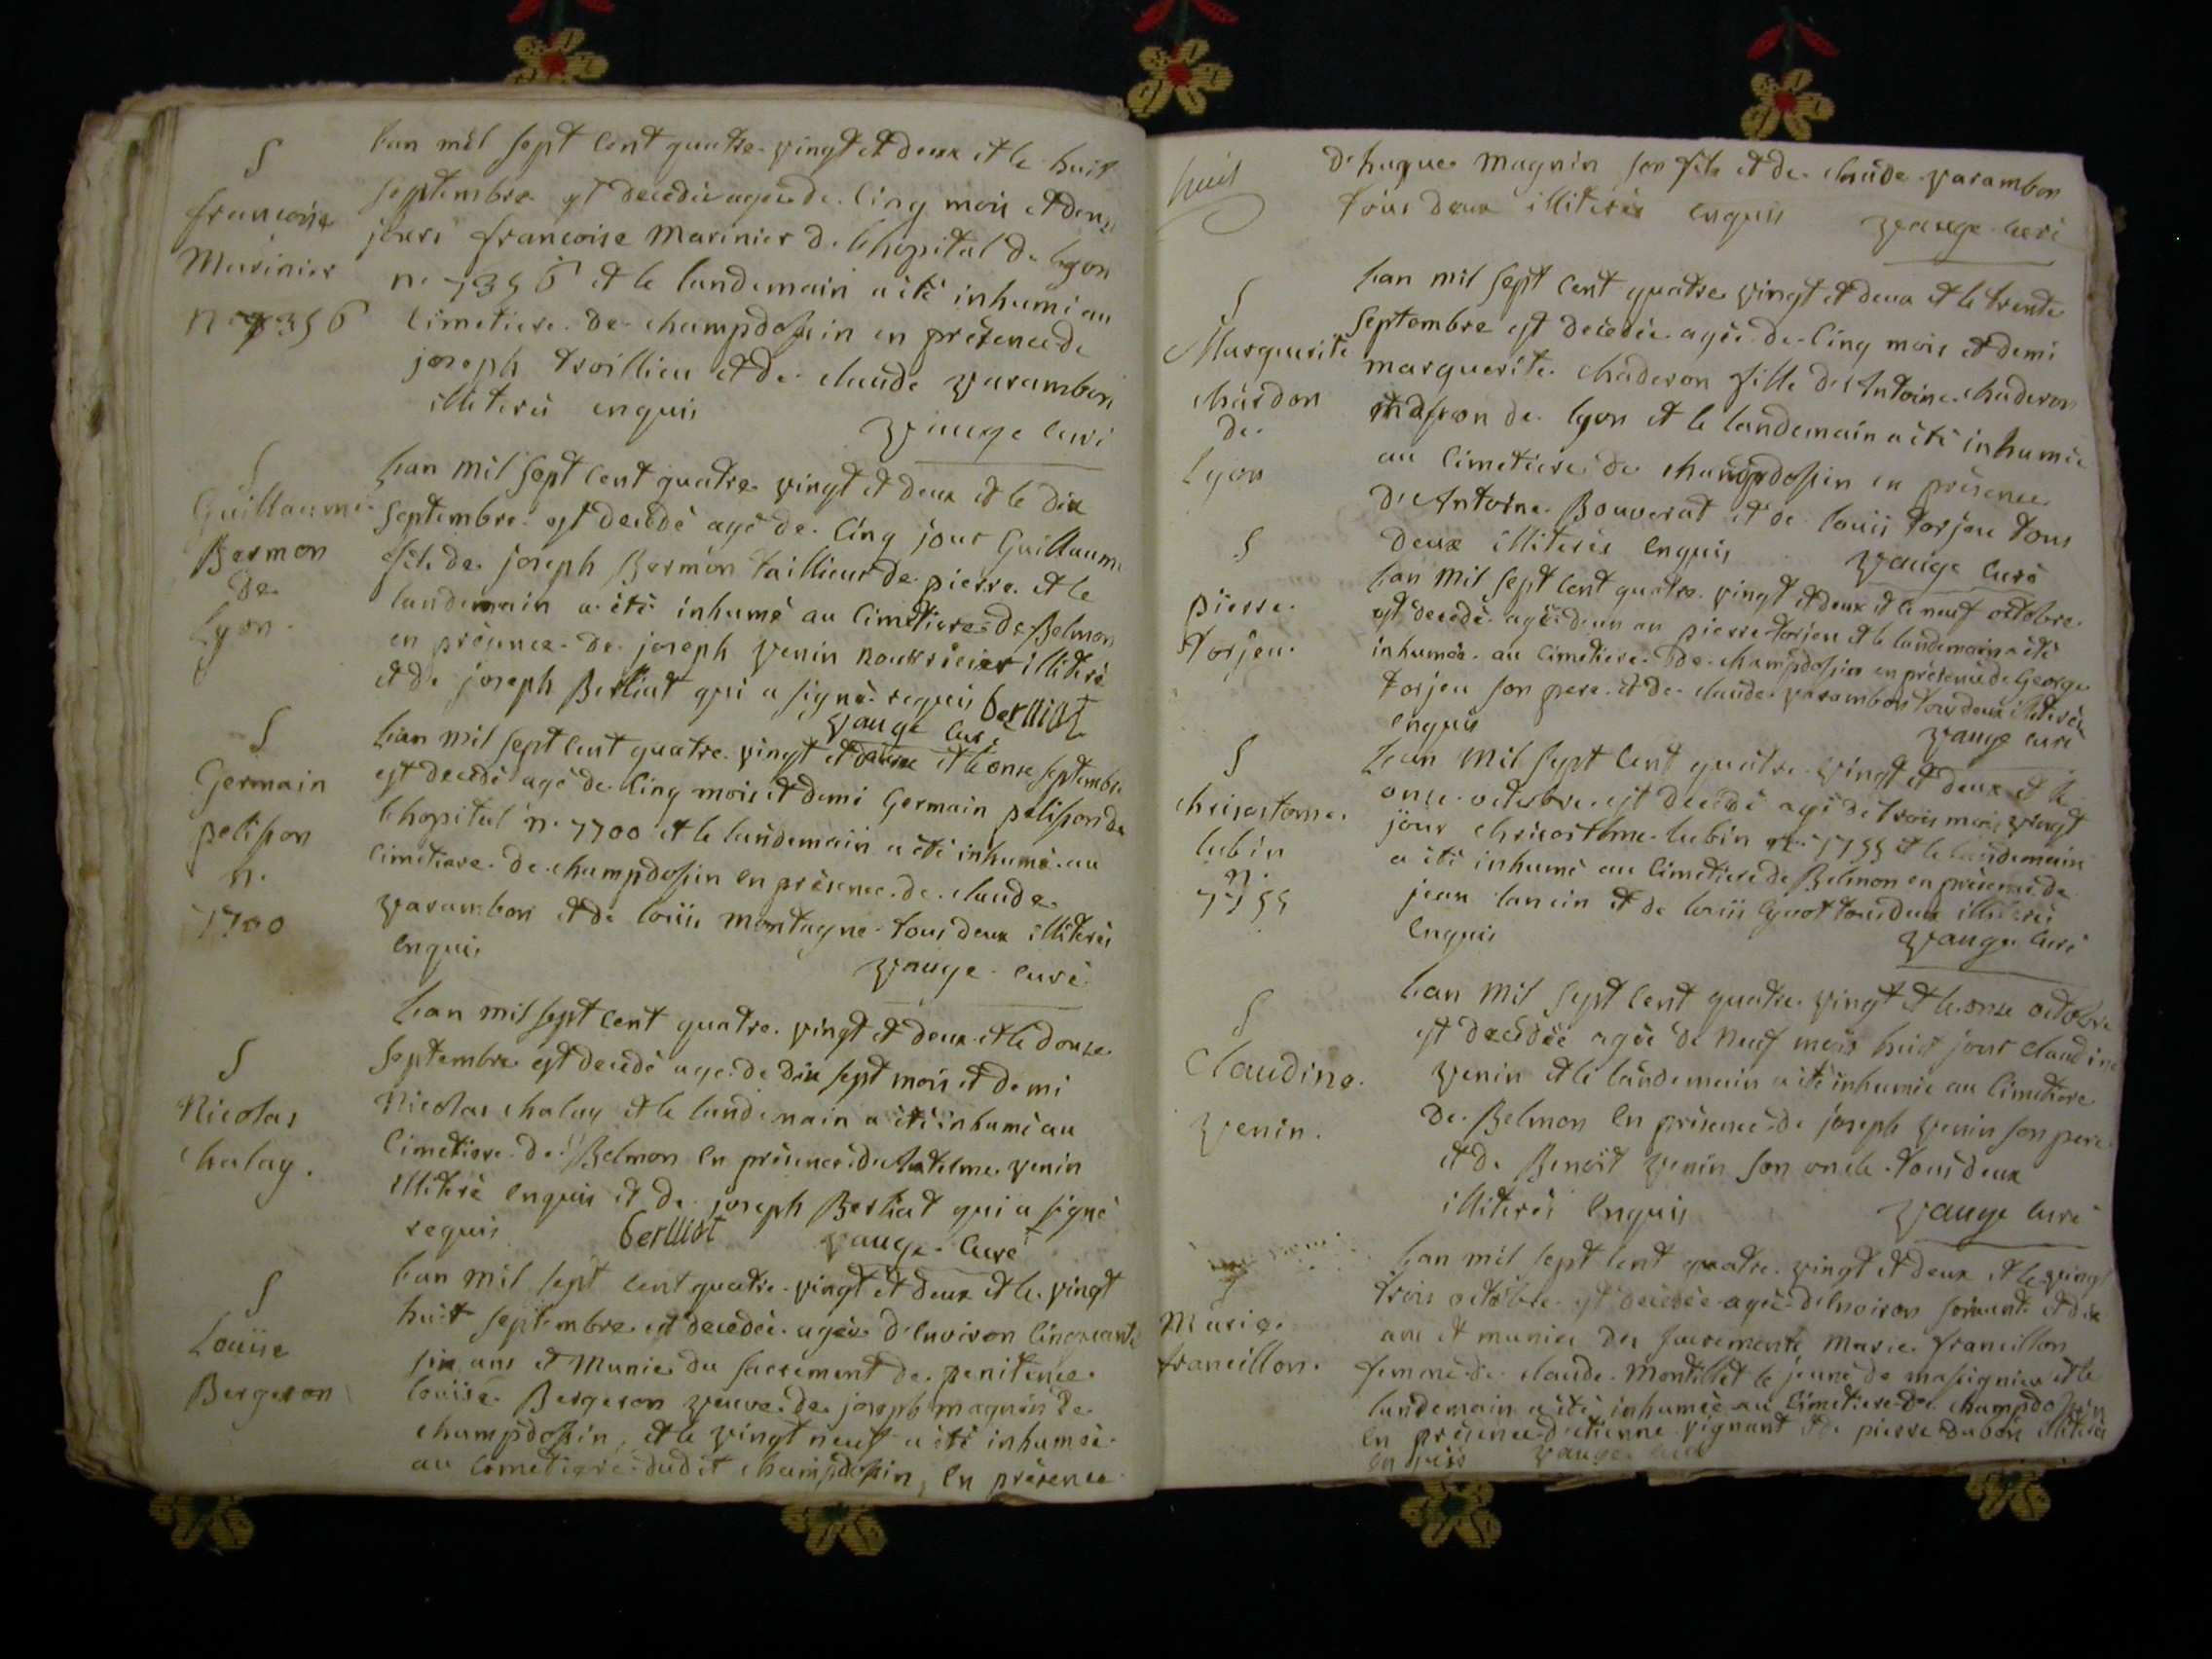 S
francoise
Marinier
n. 7356
lan mil sept cent quatre vingt et deux et le huit
septembre est decedeé ageé de cinq mois et douze
jours francoise Marinier de lhopital de lyon
n. 7356 et le landemain a été inhumé au
cimetiere de champdossin en présence de
joseph troillieu et de claude varambon
illiteré enquis
vauge curé
S
Guillaume
Bermon
de
Lyon
Lan mil sept cent quatre vingt et deux et le dix
septembre est decedé agé de cinq jour Guillaume
fils de joseph Bermon taillieur de pierre et le
landemain a été inhumé au cimetiere de Belmon
en présence de joseph venin nourricier illiteré
et de joseph Berliat qui a signé requis berlliat
vauge curé
S
Germain
pelisson
n.
7700
Lan mil sept cent quatre vingt et deux et le onze septembre
est decedé agé de cinq mois et demi Germain pelisson de
lhopital n. 7700 et le landemain a été inhumé au
cimetiere de champdossin en présence de claude
varambon et de loüis montagne tous deux illiterés
enquis
vauge curé
S
Nicolas
chalay
Lan mil sept cent quatre vingt et deux et le douze
septembre est decedé age de dix sept mois et demi
Nicolas chalay et le landemain a été inhumé au
cimetiere de Belmon en présence de Antelme venin
illiteré enquis et de joseph Berliat qui a signé
requis berlliat vauge curé
S
Loüise
Bergeron
Lan mil sept cent quatre vingt et deux et le vingt
huit septembre est decedeé ageé d'environ cinquante
six ans et munie du sacrement de penitence
loüise Bergeron veuve de joseph magnin de
champdossin, et le vingt neuf a été inhumeé
au cimetiere dudit champdossin, en présence
huit
d'hugue magnin son fils et de claude varambon
tous deux illiterés enquis vauge curé
S
Marguerite
chardon
de
Lyon
Lan mil sept cent quatre vingt et deux et le trente
septembre est decedeé ageé de cinq mois et demi
marguerite chaderon fille d'Antoine chaderon
masson de lyon et le landemain a été inhumeé
au cimetiere de champdossin en présence
d'Antoine Bouverat et de loüis torjeu tous
deux illiterés enquis vauge curé
S
pierre
torjeu
Lan mil sept cent quatre vingt et deux et le neuf octobre
est decedé agé d'un an pierre torjeu et le landemain a été
inhumé au cimetiere de champdossin en présence de George
torjeu son pere et de claude varambon tous deux illiterés
enquis
vauge curé
S
chrisostome
lubin
n.
7755
Lan mil sept cent quatre vingt et deux et le
onze octobre est decedé agé de trois mois vingt
jour chrisostome lubin n. 7755 et le landemain
a été inhumé au cimetiere de Belmon en présence de
jean lancin et de loüis Guot tous deux illiterés
enquis
vauge curé
S
Claudine
venin
Lan mil sept cent quatre vingt et le onze octobre
est decedeé ageé de neuf mois huit jour claudine
venin et le landemain a été inhumeé au cimetiere
de Belmon en présence de joseph venin son pere
et de Benoit venin son oncle tous deux
illiterés enquis
vauge curé
Marie
francillon
Lan mil sept cent quatre vingt et deux et le vingt
trois octobre est decedeé ageé d'environ soixante et dix
ans et muniee des sacrements marie francillon
femme de claude Montillet le jeune de massignieu et le
landemain a été inhumeé au cimetiere de champdossin
en présence d'etienne vignant et de pierre dubois illiterés
enquis vauge curé